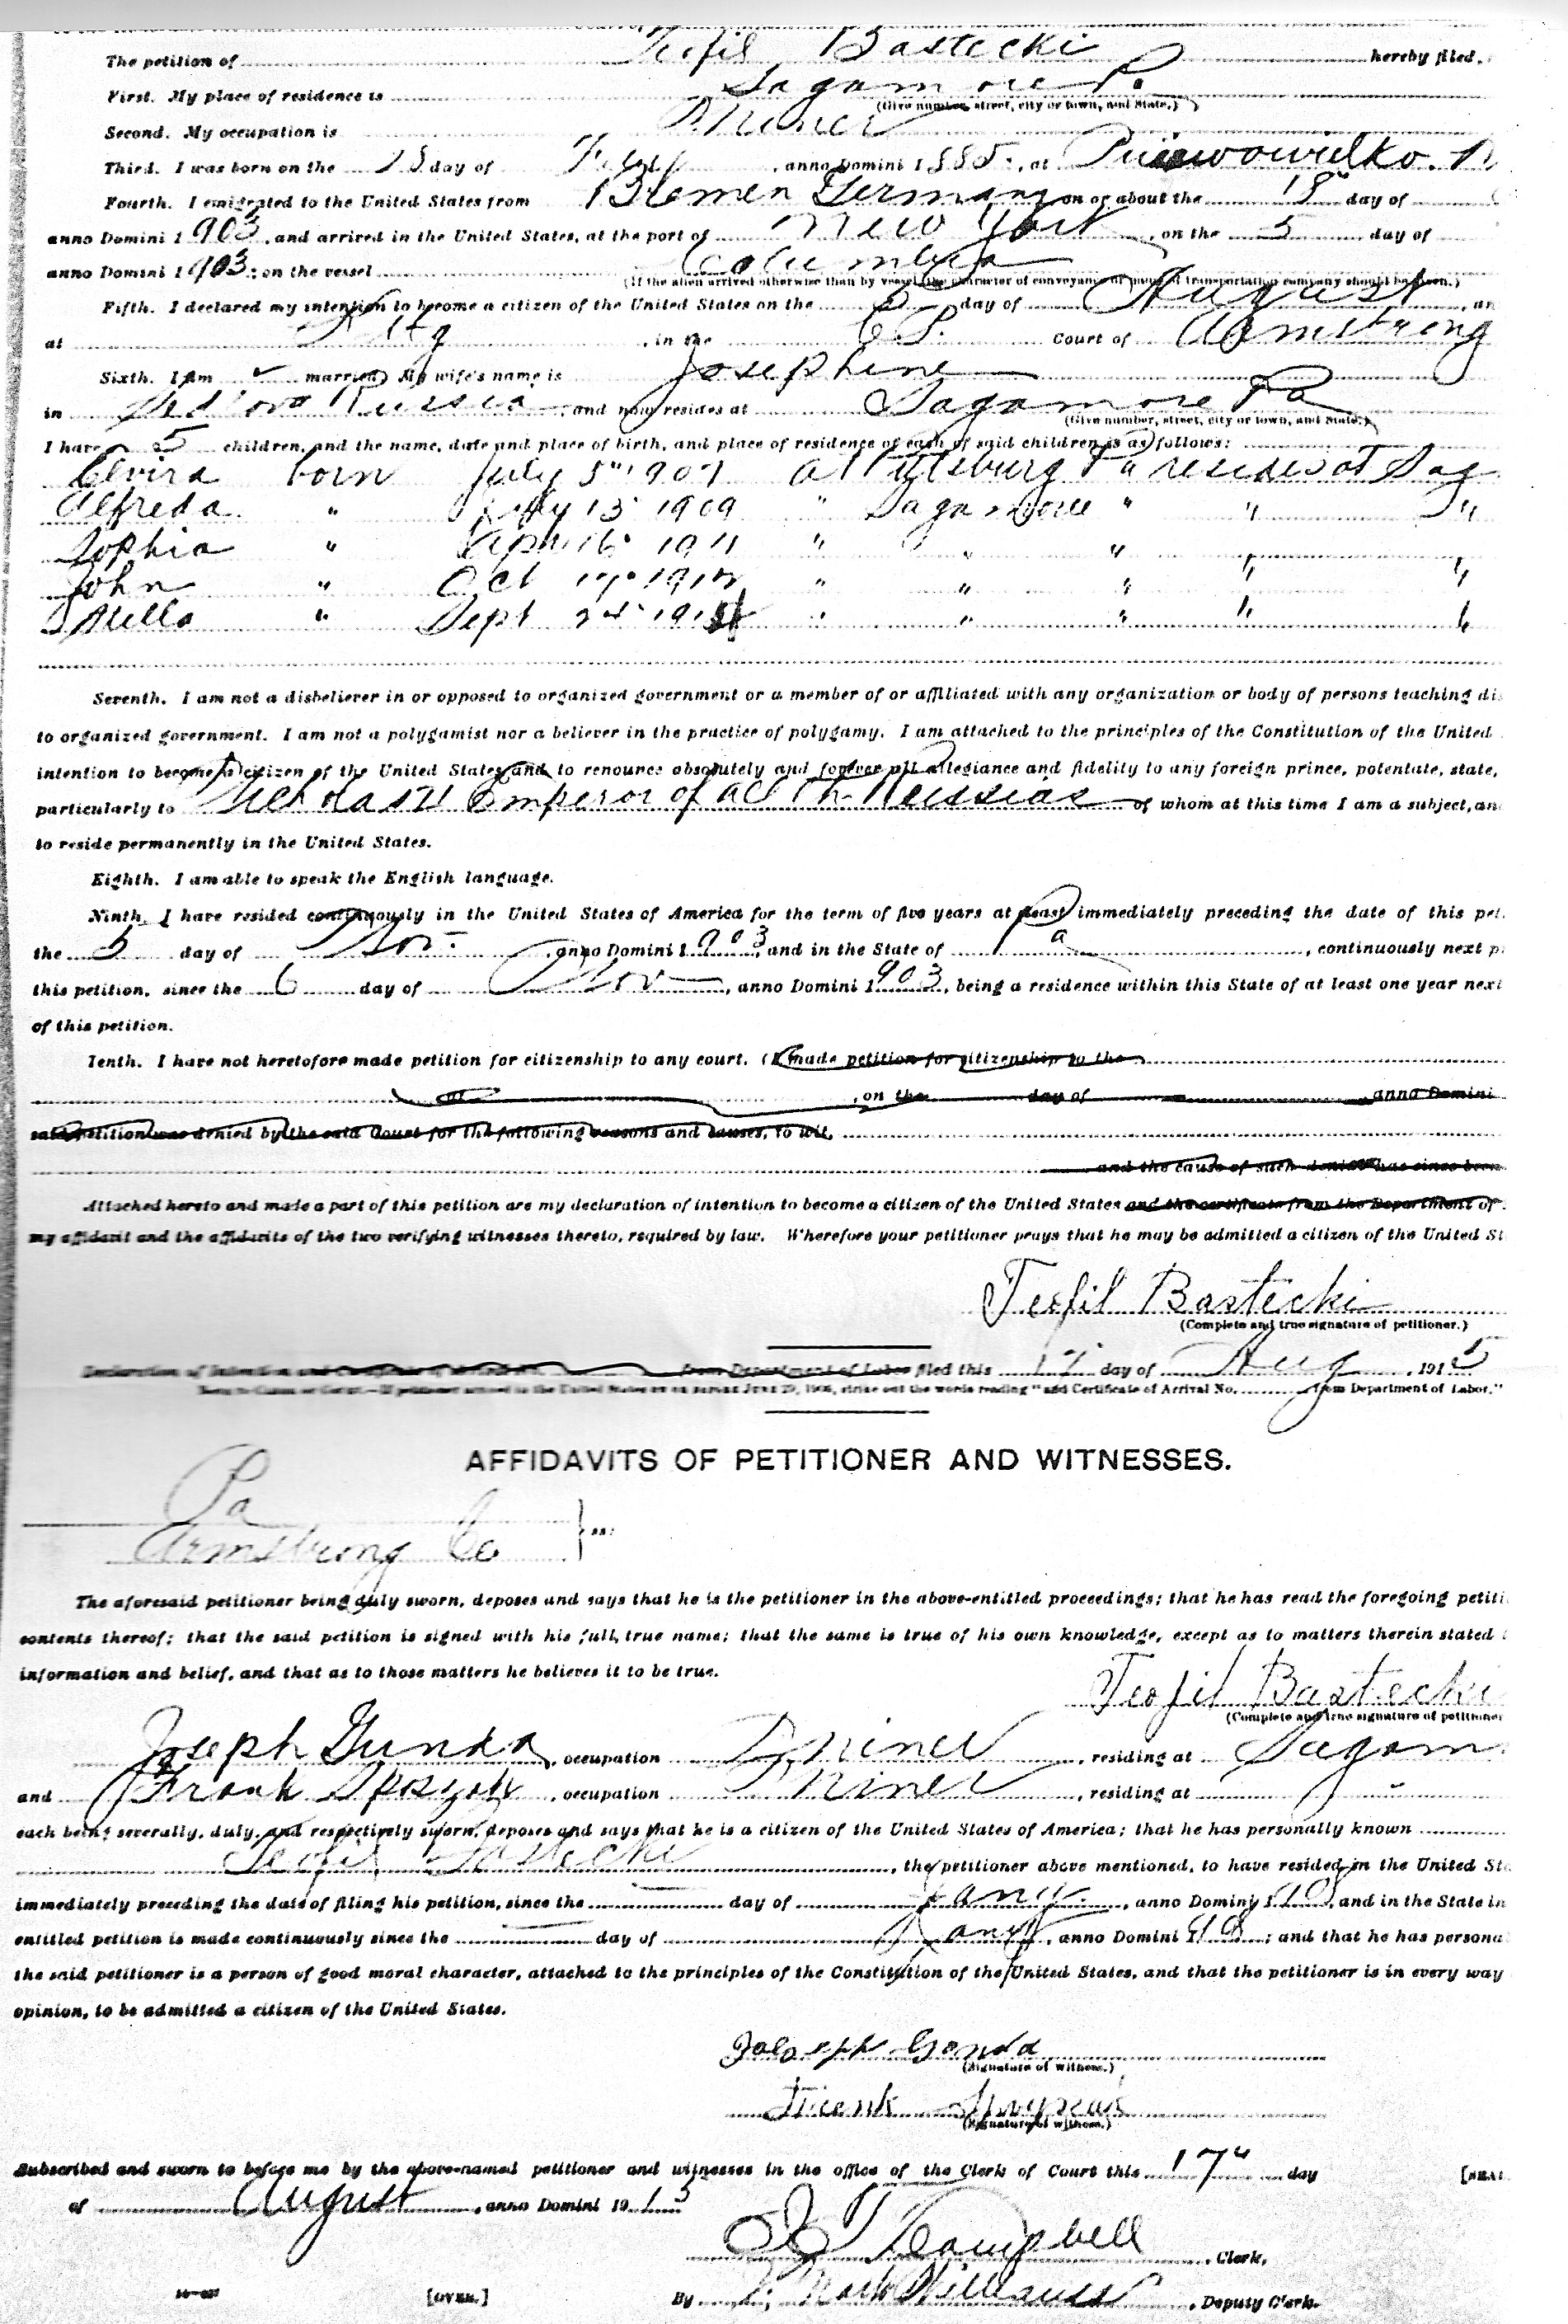 The petition of Teofil Bastecki hereby filed,
First. My place of residence is Sagamore P.
(Give number, street, city or town, and State.)
Second. My occupation is Miner
Third. I was born on the day of , anno Domini 1885, at
Fourth. I emigrated to the United States from Bremen Germany on or about the 18 day of
anno Domini 1903, and arrived in the United States, at the port of New York, on the 5 day of
anno Domini 1903; on the vessel Columbya
(If the alien arrived otherwise than by vessel, the character of conveyance or name of transportation company should be given.)
Fifth. I declared my intention to become a citizen of the United States on the 5 day of August, an
at , in the C.P. Court of Armstrong
Sixth. I am married. My wife's name is Josephine
in Russia, and now resides at Sagamore Pa
(Give number, street, city or town, and State.)
I have 5 children, and the name, date and place of birth, and place of residence of each of said children is as follows:
Elvira born July 5" 1907 at Pittsburg Pa resides at Sag
Alfreda " 13 1909 " Sagamore " " "
Sophia " 16 1911 " " " " "
John " Oct 17" 1912 " " " " "
Stella " Sept 24" 191 " " " " "
Seventh. I am not a disbeliever in or opposed to organized government or a member of or affiliated with any organization or body of persons teaching dis
to organized government. I am not a polygamist nor a believer in the practice of polygamy. I am attached to the principles of the Constitution of the United
intention to become a citizen of the United States and to renounce absolutely and forever all allegiance and fidelity to any foreign prince, potentate, state,
particularly to Nicholas II Emperor of all th Russias of whom at this time I am a subject, an
to reside permanently in the United States.
Eighth. I am able to speak the English language.
Ninth. I have resided continuously in the United States of America for the term of five years at least immediately preceding the date of this pet
the 5 day of Nov. , anno Domini 1903, and in the State of Pa , continuously next p
this petition, since the 6 day of Nov , anno Domini 1903, being a residence within this State of at least one year next
of this petition.
Tenth. I have not heretofore made petition for citizenship to any court. (I made petition for citizenship to the
at , on the day of anno Domini
said petition was denied by the said Court for the following reasons and causes, to wit,
and the cause of such denial has since been
Attached hereto and made a part of this petition are my declaration of intention to become a citizen of the United States and the certificate from the Department of
my affidavit and the affidavits of the two verifying witnesses thereto, required by law. Wherefore your petitioner prays that he may be admitted a citizen of the United St
Teofil Bastecki
(Complete and true signature of petitioner.)
Declaration of Intention and from Department of Labor filed this 17 day of Aug , 1915
Note to Clerk of Court.—If petitioner arrived in the United States on or before June 29, 1906, strike out the words reading "and Certificate of Arrival No. from Department of Labor."
AFFIDAVITS OF PETITIONER AND WITNESSES.
Pa
Armstrong Co } ss:
The aforesaid petitioner being duly sworn, deposes and says that he is the petitioner in the above-entitled proceedings; that he has read the foregoing petiti
contents thereof; that the said petition is signed with his full, true name; that the same is true of his own knowledge, except as to matters therein stated
information and belief, and that as to those matters he believes it to be true.
Teofil Bastecki
(Complete and true signature of petitioner
Joseph Gunda, occupation Miner, residing at Sagam
and Frank , occupation Miner, residing at "
each being severally, duly, and respectively sworn, deposes and says that he is a citizen of the United States of America; that he has personally known
Teofil Bastecki , the petitioner above mentioned, to have resided in the United Sta
immediately preceding the date of filing his petition, since the day of Jany. , anno Dominy 1910, and in the State in
entitled petition is made continuously since the day of Jany , anno Domini 1910 ; and that he has persona
the said petitioner is a person of good moral character, attached to the principles of the Constitution of the United States, and that the petitioner is in every way
opinion, to be admitted a citizen of the United States.
Joseph Gonda
(Signature of witness.)
Frank
(Signature of witness.)
Subscribed and sworn to before me by the above-named petitioner and witnesses in the office of the Clerk of Court this 17" day [SEAL
of August , anno Domini 1915
Campbell , Clerk.
[OVER.] By , Deputy Clerk.